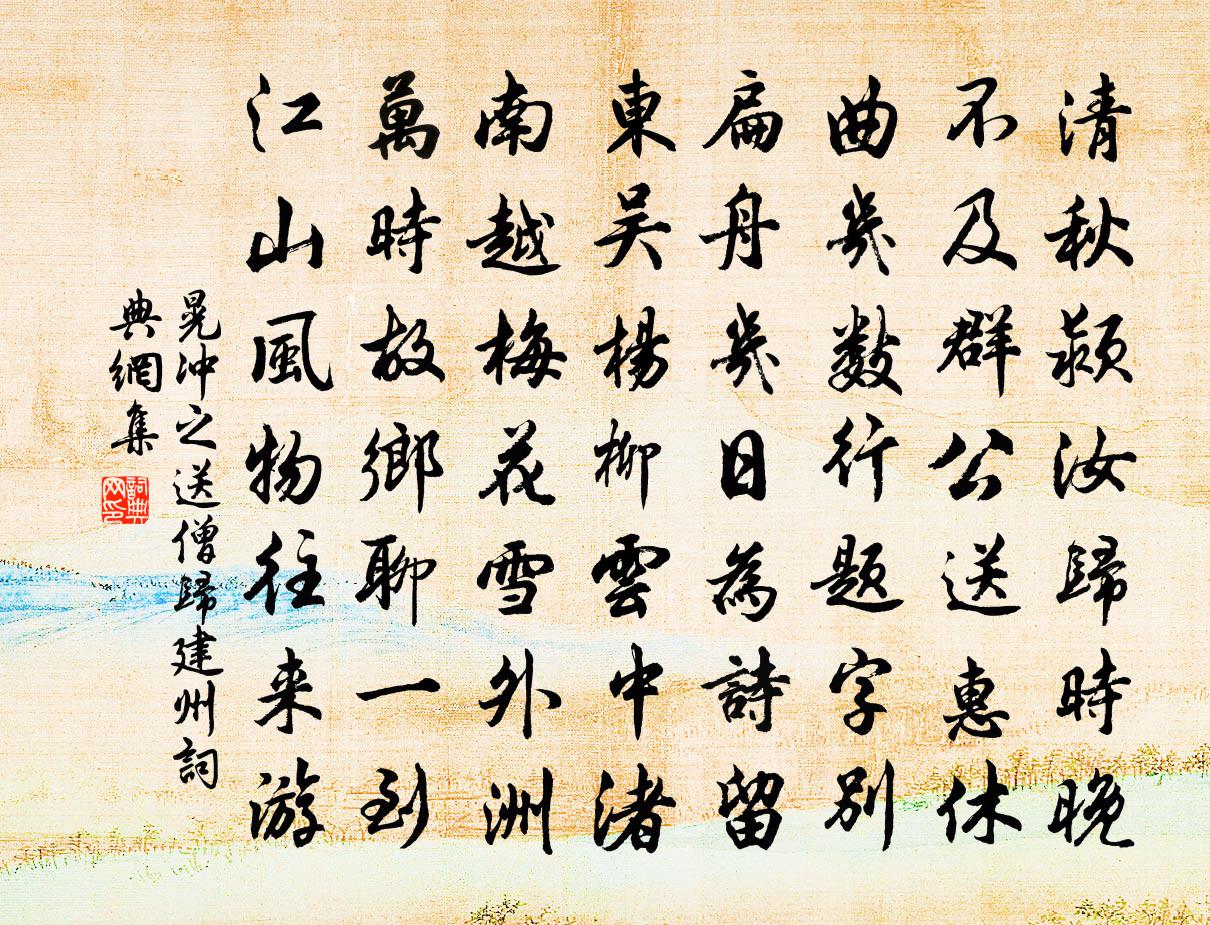 清秋潁汝歸時晚
不及群公送惠休
曲幾數行題字別
扁舟幾日為詩留
東吴楊柳雲中渚
南越梅花雪外洲
萬時故鄉聊一到
江山風物往来游
晁沖之送僧歸建州詞
典網集
詞典网印